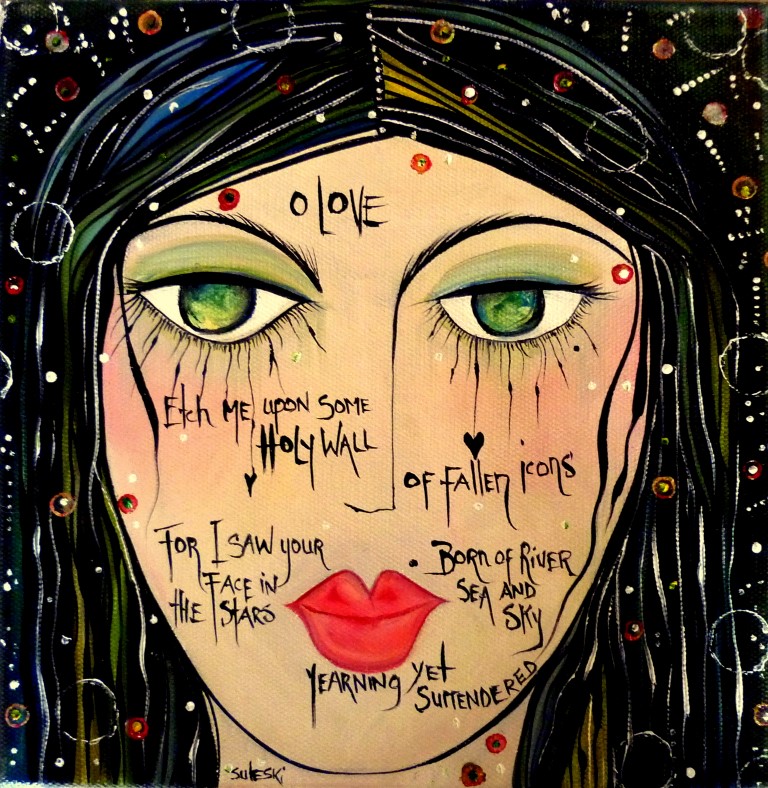 O LOVE
Etch ME upon SOME
HOLY WALL
OF fALLEN icons
FOR I SAW YOUR
FACE IN
tHE StARS
BORN of RIVER
SEA AND
SKY
YEARNING YEt
SURRENDERED
SULESKi